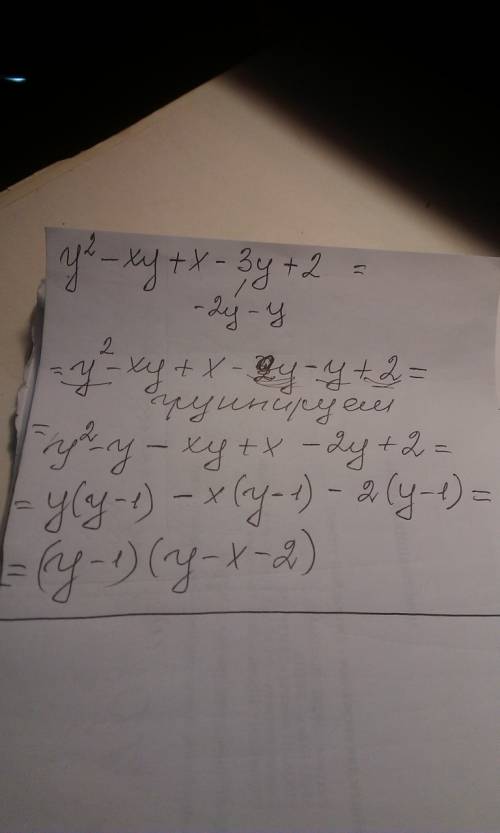 y² - xy + x - 3y + 2 =
-2y - y
= y² - xy + x - 2y - y + 2 =
группируем
= y² - y - xy + x - 2y + 2 =
= y(y-1) - x(y-1) - 2(y-1) =
= (y-1)(y-x-2)